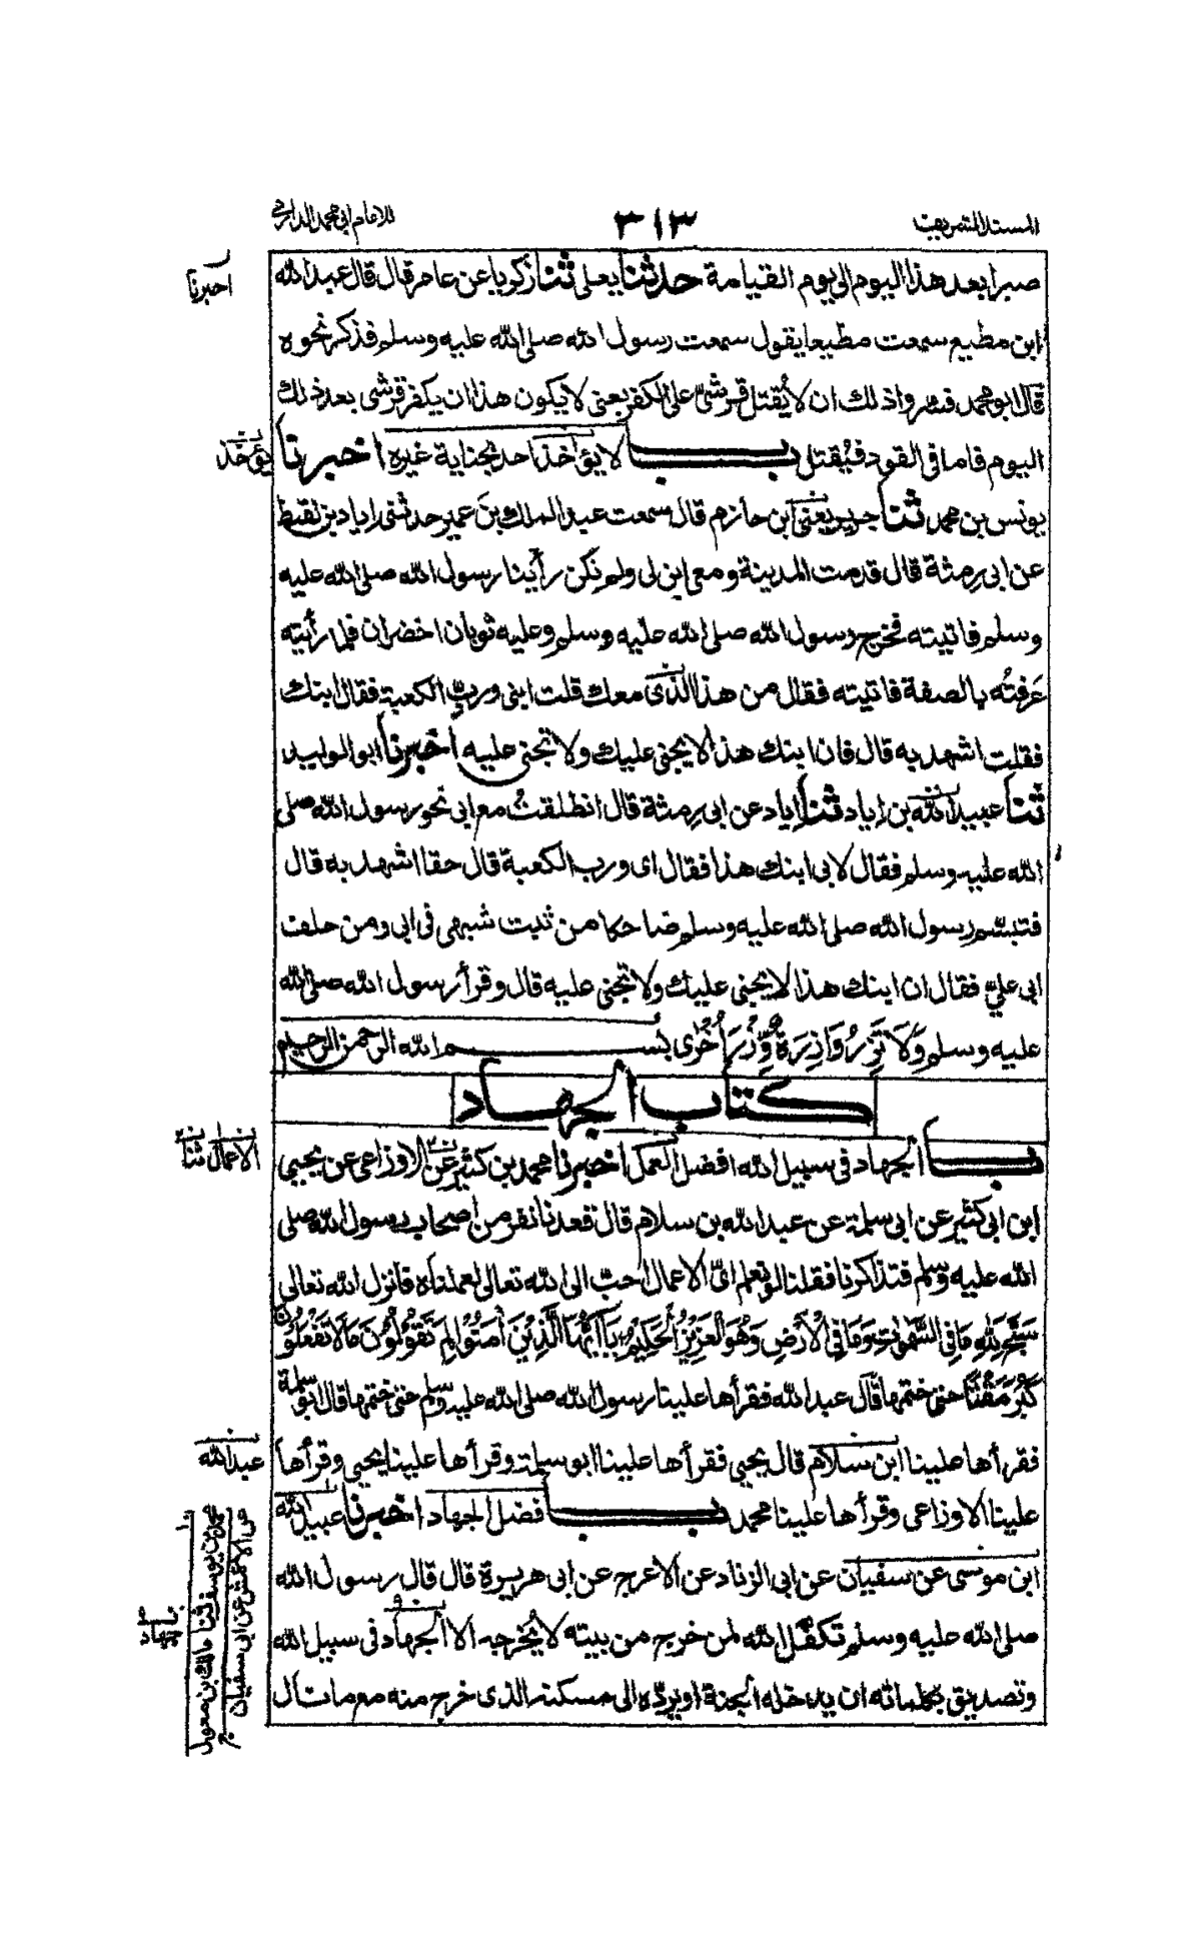 المسند الشريف
٣١٣
للامام ابی محمد الدارمی
صبرا بعد هذا اليوم الى يوم القيامة حدثنا يعلى ثنا زكريا عن عامر قال قال عبد الله
ابن مطيع سمعت مطيعا يقول سمعت رسول الله صلى الله عليه وسلم فذكر نحوه
قال ابو محمد فسروا ذلك ان لا يُقتل قرشىّ على الكفر يعنى لا يكون هذا ان يكفر قرشى بعد ذلك
اليوم فاما فى القود فيُقتل باب لا يؤاخذ احد بجناية غيره اخبرنا
يونس بن محمد ثنا جرير يعنى ابن حازم قال سمعت عبد الملك بن عمير حدثنى اياد بن لقيط
عن ابى رمثة قال قدمت المدينة ومعى ابن لى ولم نكن رأينا رسول الله صلى الله عليه
وسلم فاتيته فخرج رسول الله صلى الله عليه وسلم وعليه ثوبان اخضران فلما رأيته
عَرفتُه بالصفة فاتيته فقال من هذا الذى معك قلت ابنى وربِّ الكعبة فقال ابنك
فقلت اشهد به قال فان ابنك هذا لا يجنى عليك ولا تجنى عليه اخبرنا ابو الوليد
ثنا عبيد الله بن اياد ثنا اياد عن ابى رمثة قال انطلقتُ مع ابى نحو رسول الله صلى
الله عليه وسلم فقال لابى ابنك هذا فقال اى ورب الكعبة قال حقا اشهد به قال
فتبسّم رسول الله صلى الله عليه وسلم ضاحكا من ثبت شبهى فى ابى ومن حلف
ابى علىّ فقال ان ابنك هذا لا يجنى عليك ولا تجنى عليه قال وقرأ رسول الله صلى الله
عليه وسلم وَلَا تَزِرُ وَازِرَةٌ وِّزْرَ أُخْرٰى بسم الله الرحمن الرحيم
كتاب الجهاد
باب الجهاد فى سبيل الله افضل العمل اخبرنا محمد بن كثير عن الاوزاعى عن يحيى
ابن ابى كثير عن ابى سلمة عن عبد الله بن سلام قال قعدنا نفر من اصحاب رسول الله صلى
الله عليه وسلم فتذاكرنا فقلنا لو نعلم اىّ الاعمال احبّ الى الله تعالى لعملناه فانزل الله تعالى
سَبَّحَ لِلّٰهِ مَا فِى السَّمٰوٰتِ وَمَا فِى الْاَرْضِ وَهُوَ الْعَزِيْزُ الْحَكِيْمُ يٰاَيُّهَا الَّذِيْنَ اٰمَنُوْا لِمَ تَقُوْلُوْنَ مَا لَا تَفْعَلُوْنَ
كَبُرَ مَقْتًا حتى ختمها قال عبد الله فقرأها علينا رسول الله صلى الله عليه وسلم حتى ختمها قال ابو سلمة
فقرأها علينا ابن سلام قال يحيى فقرأها علينا ابو سلمة وقرأها علينا يحيى وقرأها
علينا الاوزاعى وقرأها علينا محمد باب فضل الجهاد اخبرنا عبيد الله
ابن موسى عن سفيان عن ابى الزناد عن الاعرج عن ابى هريرة قال قال رسول الله
صلى الله عليه وسلم تكفّل الله لمن خرج من بيته لا يُخرجه الا الجهاد فى سبيل الله
وتصديق بكلماته ان يدخله الجنة او يردّه الى مسكنه الذى خرج منه مع ما نال
اخبرنا
يؤخذ
الاعمال ثنا
عبد الله
عن الاعمش عن ابى سفيان
محمد بن يوسف ثنا مالك بن مغول
جهاد